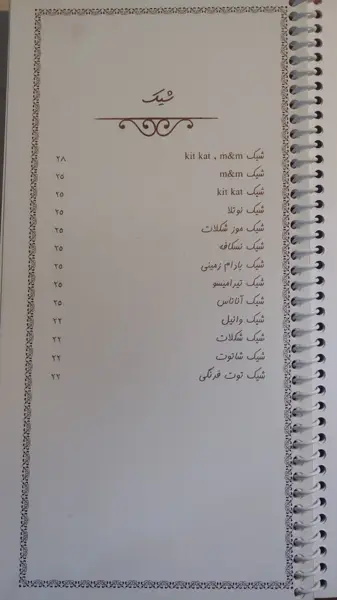 شیک
شیک kit kat ، m&m ۲۸
شیک m&m ۲۵
شیک kit kat ۲۵
شیک نوتلا ۲۵
شیک موز شکلات ۲۵
شیک نسکافه ۲۵
شیک بادام زمینی ۲۵
شیک تیرامیسو ۲۵
شیک آناناس ۲۵
شیک وانیل ۲۲
شیک شکلات ۲۲
شیک شاتوت ۲۲
شیک توت فرنگی ۲۲